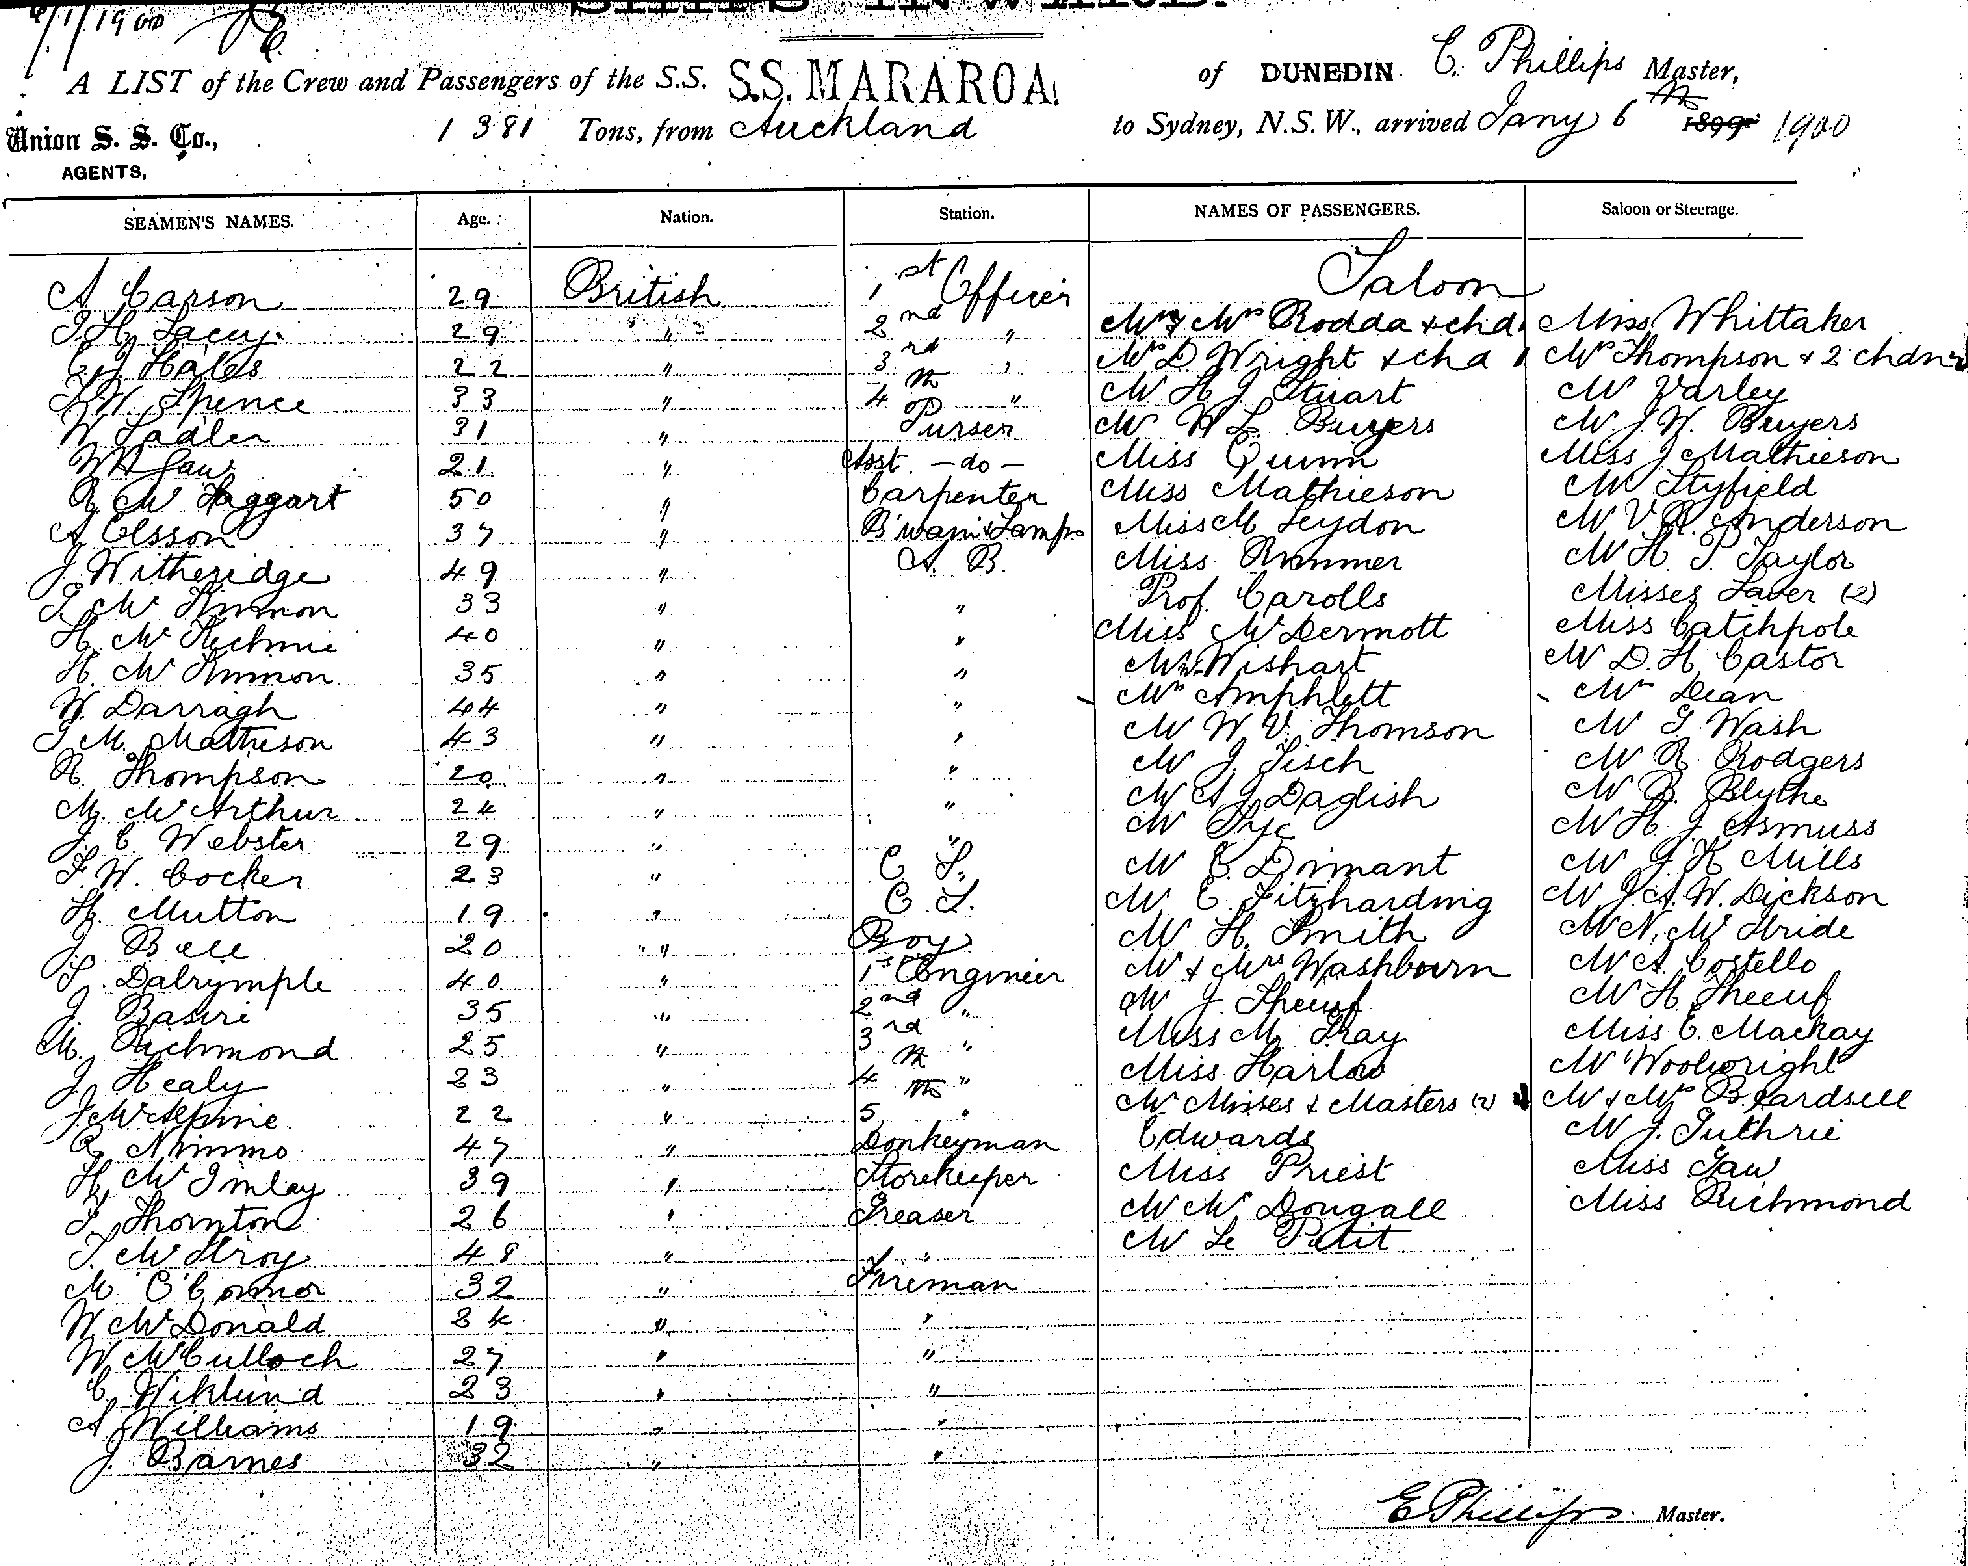 SHIPS INWARD.
/1/1900
A LIST of the Crew and Passengers of the S.S. S.S. MARAROA. of DUNEDIN C. Phillips Master,
Union S. S. Co., 1381 Tons, from Auckland to Sydney, N.S.W., arrived Jany 6th 1899 1900
AGENTS,
SEAMEN'S NAMES. Age. Nation. Station. NAMES OF PASSENGERS. Saloon or Steerage.
Saloon
A Carson 29 British 1st Officer
J H Lacey 29 " 2nd " Mr & Mrs Rodda & chd Miss Whittaker
Hales 22 " 3rd " Mrs D Wright & chd 1 Mrs Thompson & 2 chdn
W. Spence 33 " 4th " Mr H J Stuart Mr Varley
W Sadler 31 " Purser Mr W L Buyers Mr J. W. Buyers
W H Law 21 " Asst - do - Miss Quinn Miss J Mathieson
R McTaggart 50 " Carpenter Miss Mathieson Mr Styfield
A Olsson 37 " B'wain & Lamps Miss M Leydon Mr V R Anderson
J Witheridge 49 " A. B. Miss Rimmer Mr H. P. Taylor
McKinnon 33 " " Prof. Carolls Misses Laver (2)
H. McKechnie 40 " " Miss McDermott Miss Catchpole
H. McKinnon 35 " " Mr Wishart Mr D. H. Castor
W. Darragh 44 " " Mrs Amphlett Mrs Dean
J M. Matheson 43 " " Mr W. V. Thomson Mr G Wash
R. Thompson 20 " " Mr J. Tisch Mr R Rodgers
M. McArthur 24 " " Mr A J Daglish Mr B. Blythe
J. C Webster 29 " " Mr Pye Mr H. J Asmuss
F. W. Cocker 23 " O. S. Mr E. Dimant Mr J. K Mills
H. Mutton 19 " O. S. Mr E. Fitzharding Mr J. A. W. Dickson
J. Bell 20 " Boy Mr H. Smith Mr N. McBride
Dalrymple 40 " 1st Engineer Mr & Mrs Washbourn Mr A. Costello
J. Basire 35 " 2nd " Mr J. Sheeuf Mr H Sheeuf
M. Richmond 25 " 3rd " Miss M. Gray Miss E. Mackay
J Healy 23 " 4th " Miss Harlow Mr Woolwright
J McAlpine 22 " 5th " Mr Misses & Masters (2) Mr & Mrs Beardsell
R. Nimmo 47 " Donkeyman Edwards Mr J. Guthrie
H, McImley 39 " Storekeeper Miss Priest Miss Gaw
J. Thornton 26 " Greaser Mr McDougall Miss Richmond
J. McIlroy 48 " " Mr Le Petit
M. O'Connor 32 " Fireman
W. McDonald 34 " "
W. McCulloch 27 " "
C. Wiklund 23 " "
A Williams 19 " "
J Barnes 32 " "
E Phillips Master.